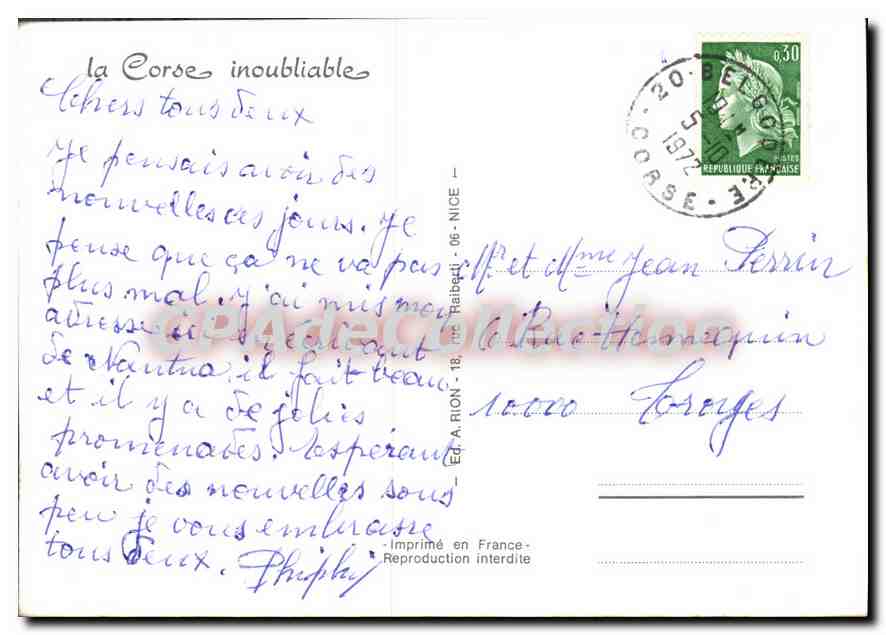 la Corse inoubliable
Chers tous deux
Je pensais avoir des
nouvelles ces jours. Je
pense que ça ne va pas
plus mal. J'ai mis mon
adresse en écrivant
de Nantua, il fait beau
et il y a de jolies
promenades. Espérant
avoir des nouvelles sous
peu je vous embrasse
tous deux.
Ed. A. RION - 18, rue Raiberti - 06 - NICE
-Imprimé en France-
Reproduction interdite
0,30
POSTES
REPUBLIQUE FRANÇAISE
20 - BELGODERE
19 H
5 - 10
1972
CORSE
Mr et Mme Jean Perrin
6 Rue Hennequin
10000 Troyes
CPAdeCollection